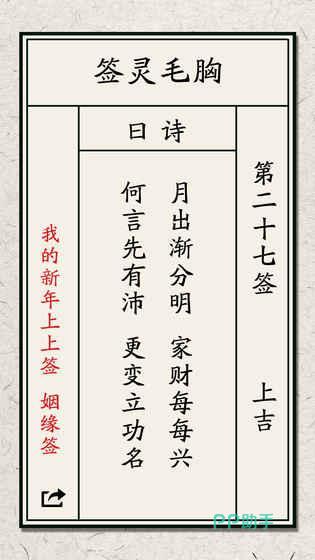 胸毛灵签
第二十七签 上吉
诗曰
月出渐分明 家财每每兴
何言先有沛 更变立功名
我的新年上上签 姻缘签
PP助手